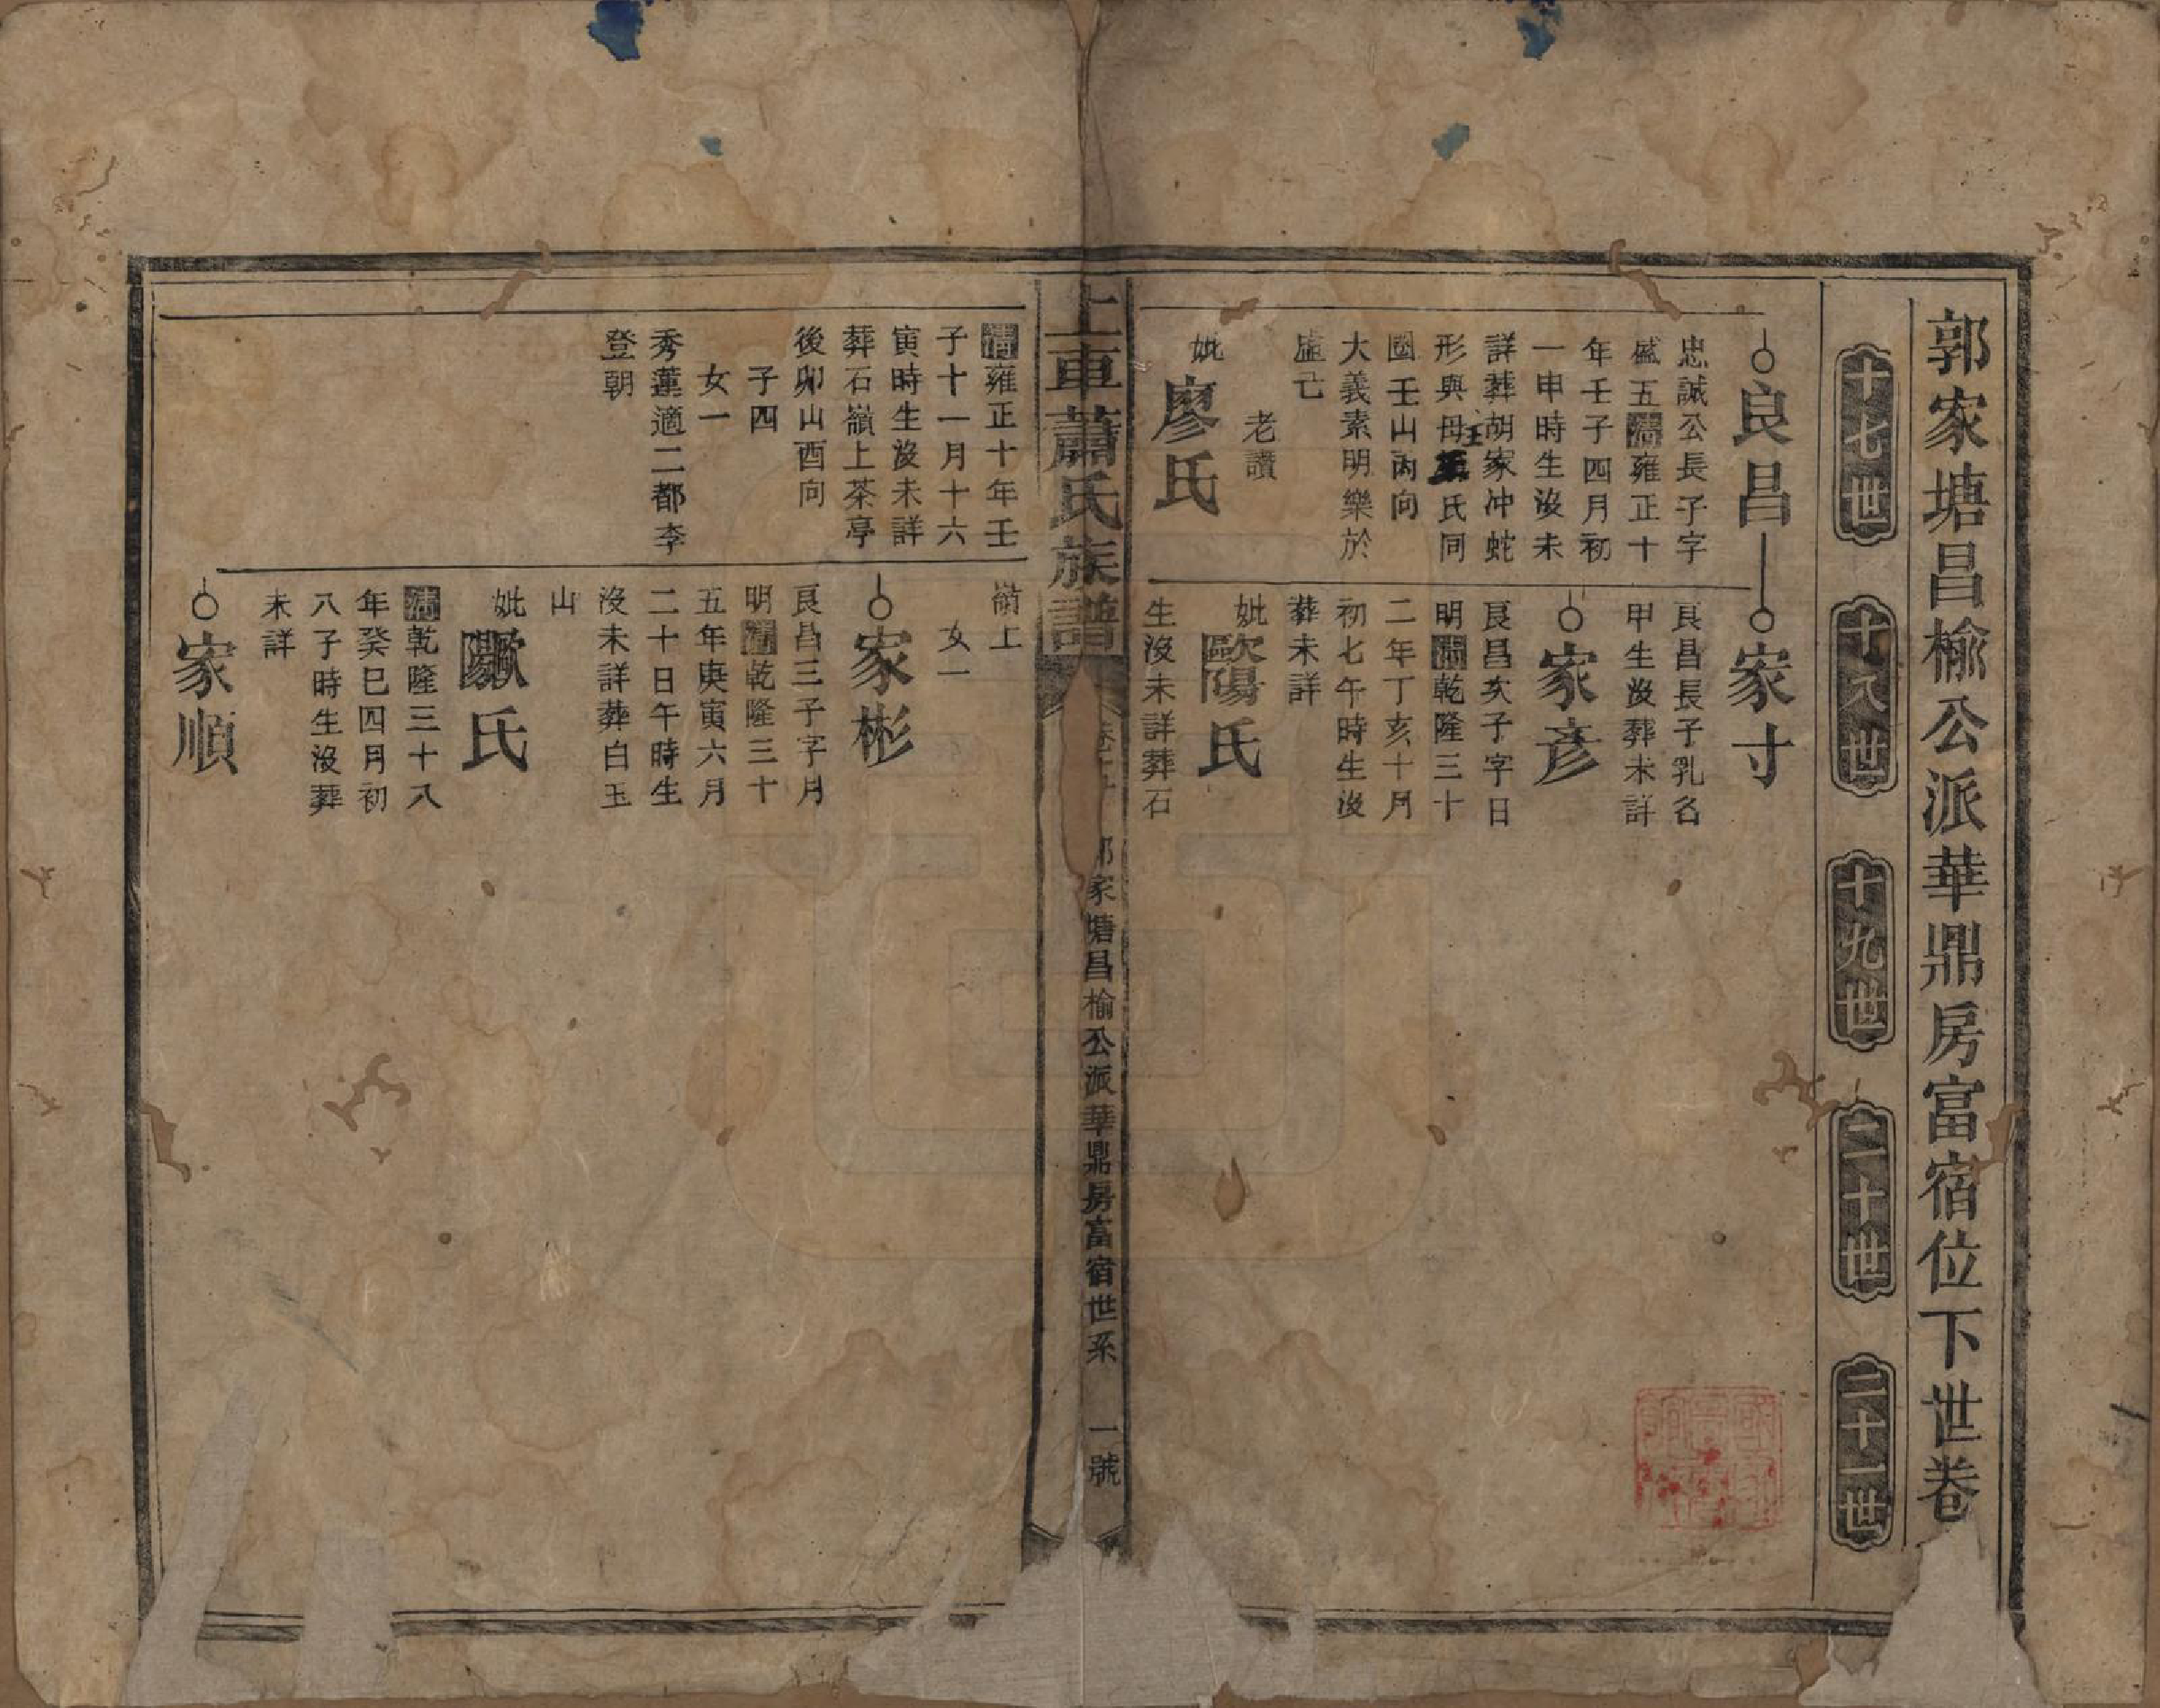 郭家塘昌榆公派華鼎房富宿位下世卷
十七世
十八世
十九世
二十世
二十一世
良昌
忠誠公長子字
盛五清雍正十
年壬子四月初
一申時生沒未
詳葬胡家冲蛇
形與母王氏同
國壬山丙向
大義素明樂於
虛亡
老讚
妣廖氏
家寸
良昌長子乳名
甲生沒葬未詳
家彥
良昌次子字日
明清乾隆三十
二年丁亥十月
初七午時生沒
葬未詳
妣歐陽氏
生沒未詳葬石
上車蕭氏族譜
家塘昌榆公派華鼎房富宿世系
一號
清雍正十年壬
子十一月十六
寅時生沒未詳
葬石嶺上茶亭
後卯山酉向
子四
女一
秀蓮適二都李
登朝
嶺上
女一
家彬
良昌三子字月
明清乾隆三十
五年庚寅六月
二十日午時生
沒未詳葬白玉
山
妣歐陽氏
清乾隆三十八
年癸巳四月初
八子時生沒葬
未詳
家順